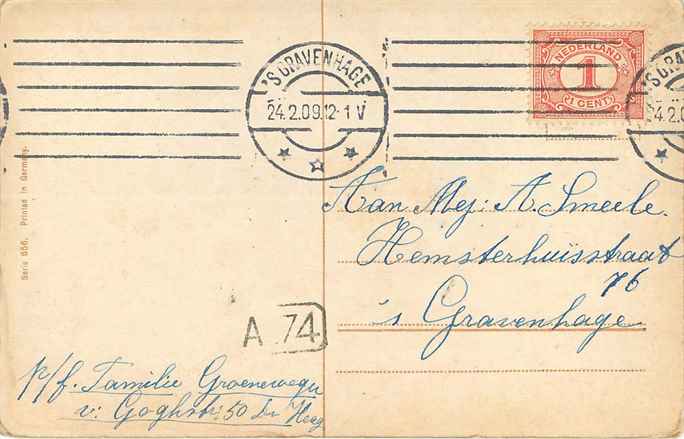 'S GRAVENHAGE
24.2.09.12-1 V
NEDERLAND
1
1 CENT
'S GRAV
4.2.0
Serie 656. Printed in Germany.
Aan Mej: A. Smeele.
Hemsterhuisstraat
76
's Gravenhage
A 74
p/f. Familie Groenewegen
v: Goghstr: 50 Den Haag